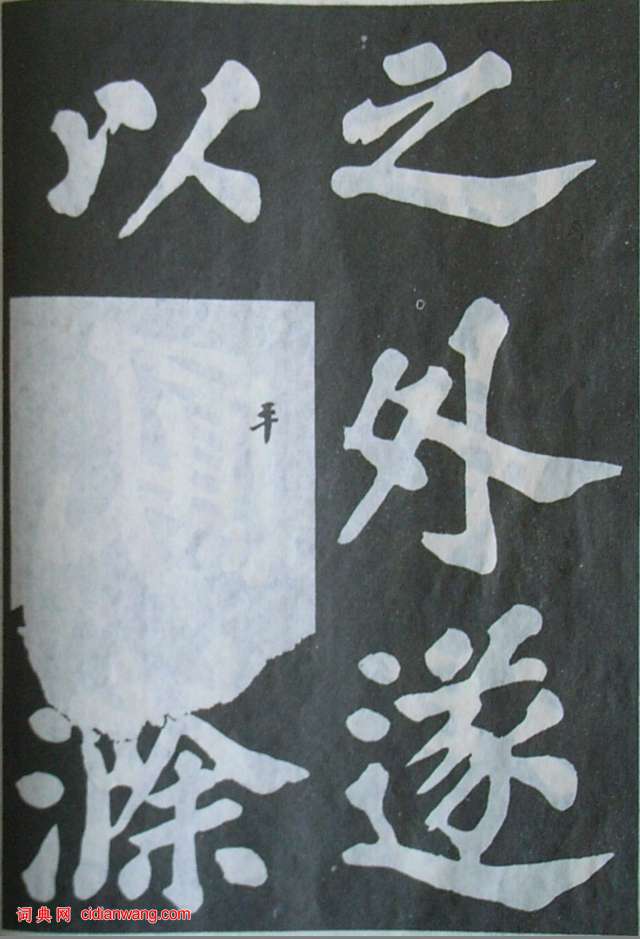 之外遂
以平滁
词典网 cidianwang.com